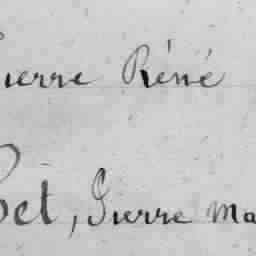 Pierre Réné
et, Pierre Ma